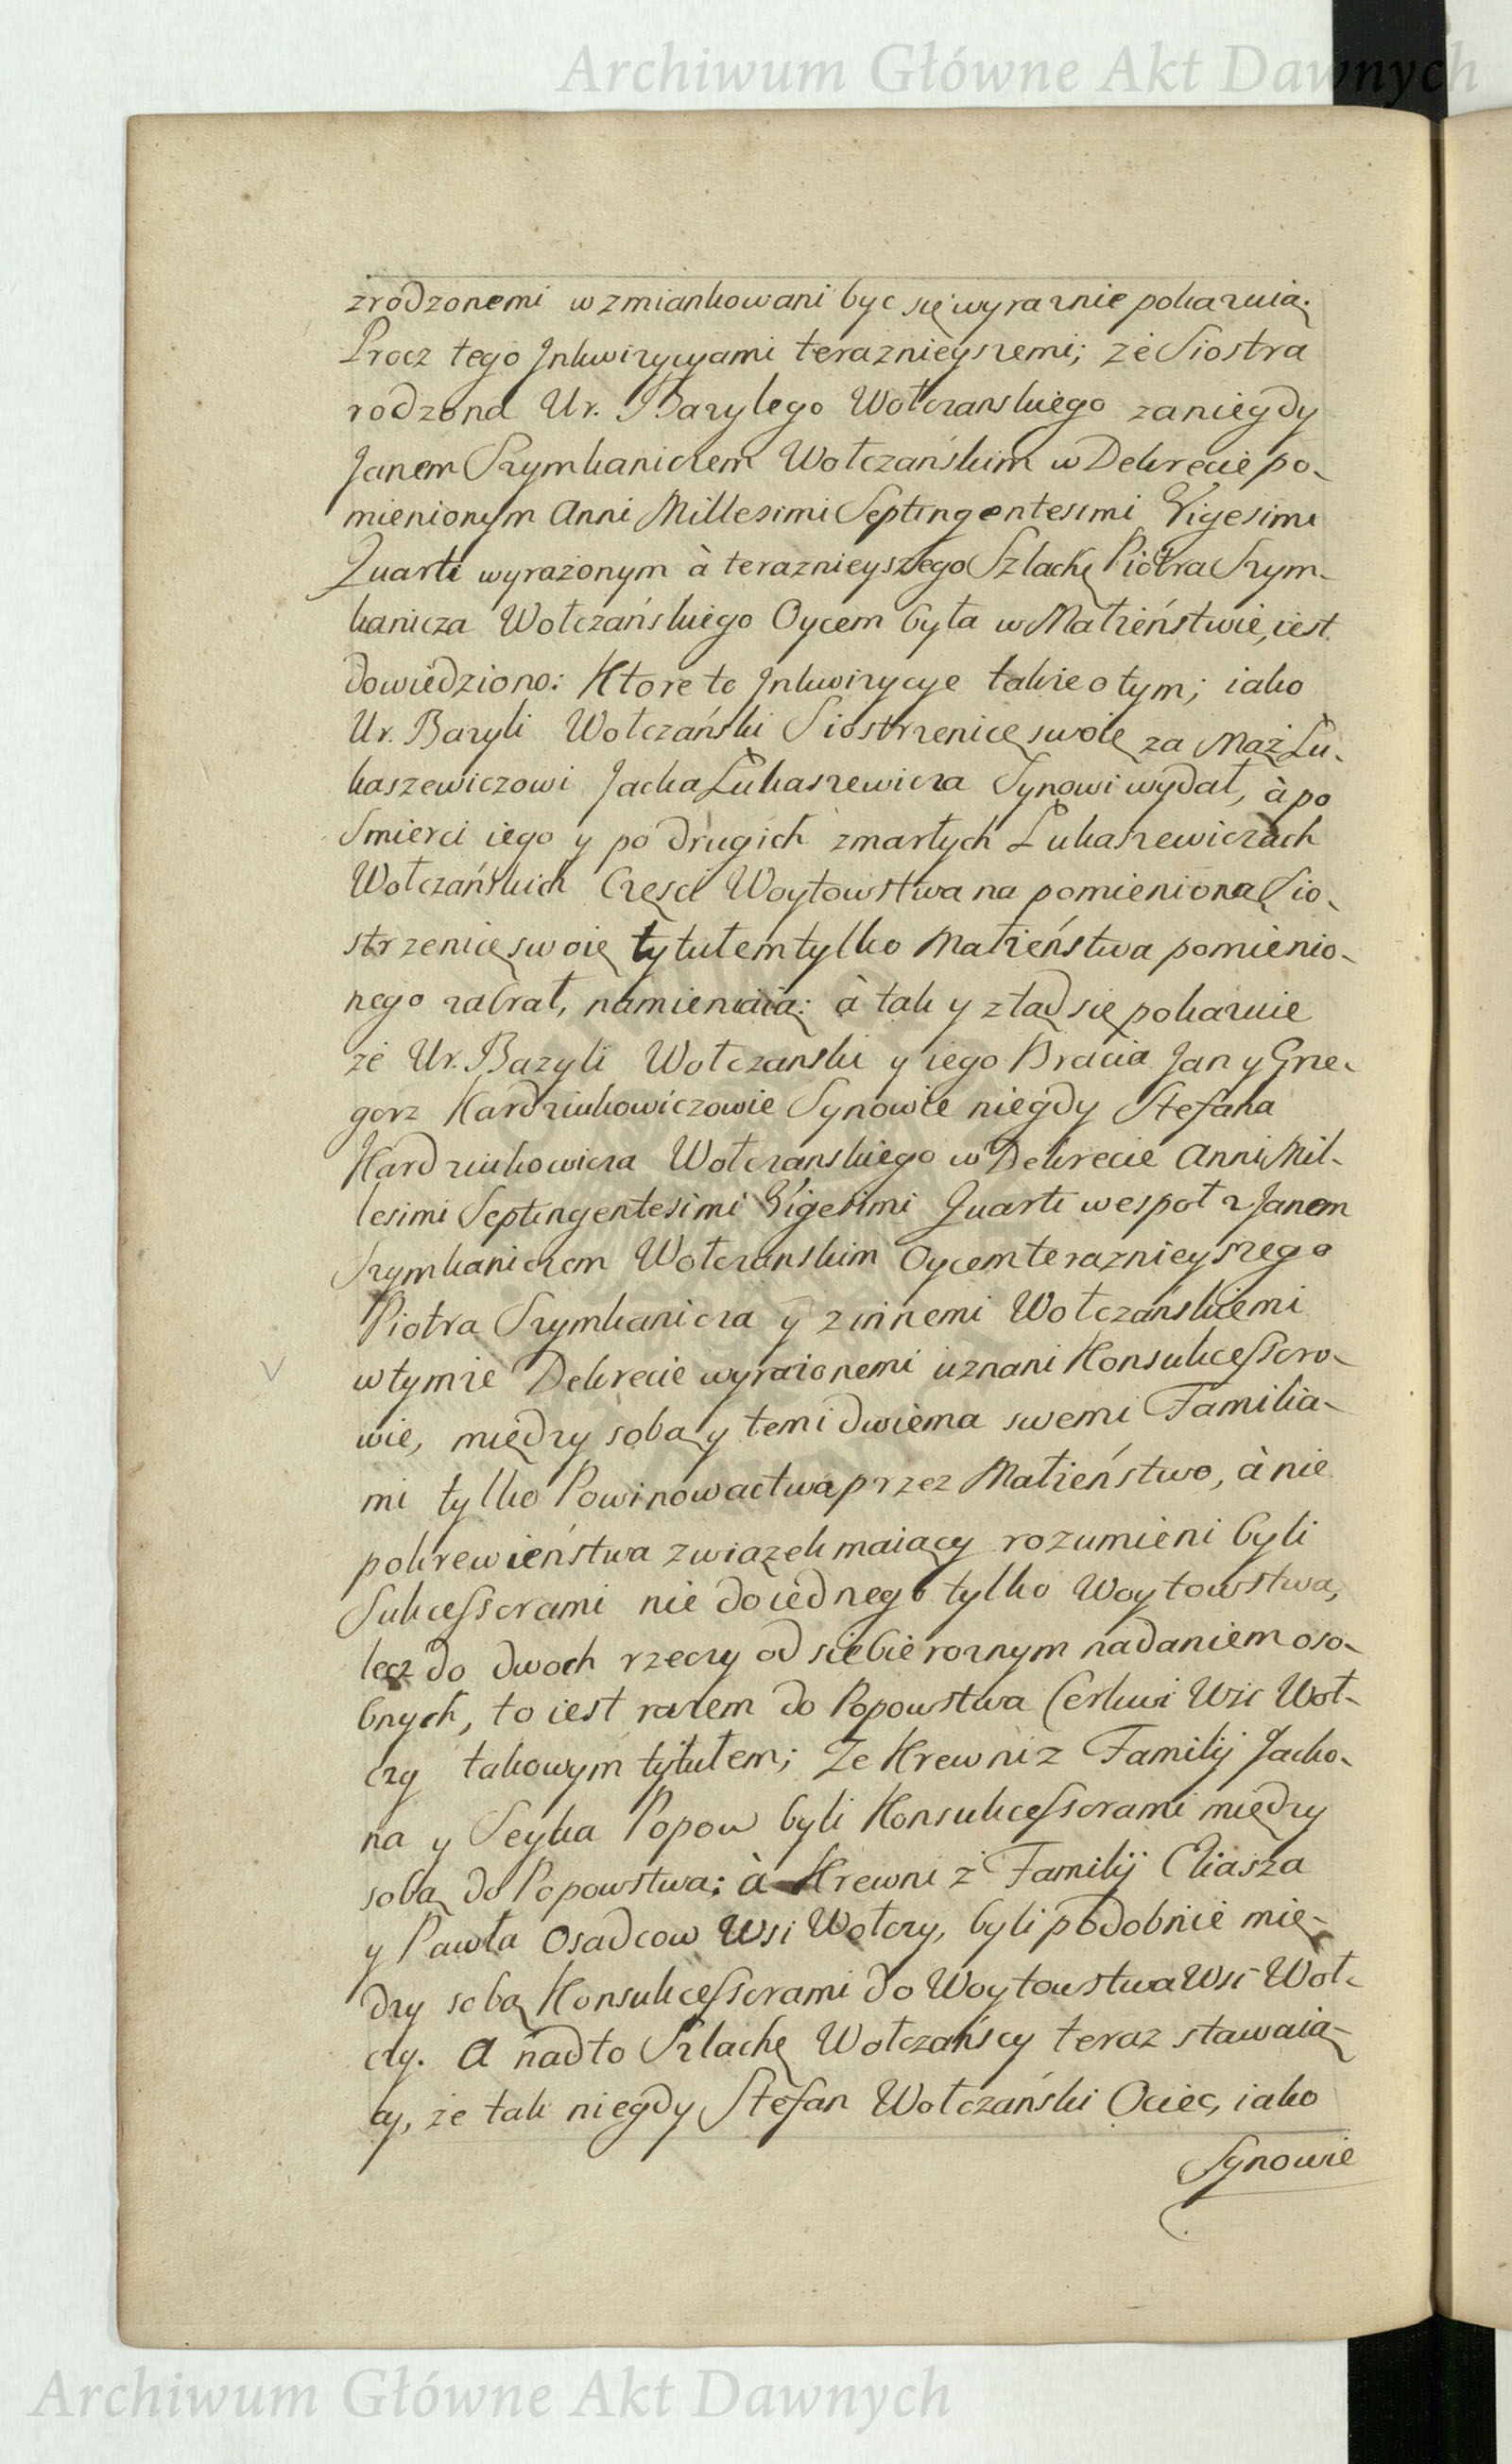 Archiwum Główne Akt Dawnych
zrodzonemi wzmiankowani byc się wyraznie pokazuią.
Procz tego Jnkwizycyami teraznieyszemi; że Siostra
rodzona Ur. Bazylego Wołczanskiego za niegdy
Janem Szymkaniczem Wołczańskim w Dekrecie po-
mienionym Anni Millesimi Septingentesimi Vigesimi
Quarti wyrażonym à teraznieyszego Szlachę Piotra Szym-
kanicza Wołczańskiego Oycem była w Małżeństwie, iest
dowiedziono: Ktore to Jnkwizycye także o tym; iako
Ur. Bazyli Wołczański Siostrzenicę swoię za Mąż Łu-
kaszewiczowi Jacka Łukaszewicza Synowi wydał, à po
Smierci iego y po drugich zmarłych Łukaszewiczach
Wołczańskich Częsci Woytowstwa na pomienioną Sio-
strzenicę swoię tytułem tylko Małżeństwa pomienio-
nego zabrał, namieniaią: à tak y ztąd się pokazuie
że Ur. Bazyli Wołczanski y iego Bracia Jan y Grze-
gorz Hardziukowiczowie Synowie niegdy Stefana
Hardziukowicza Wołczanskiego w Dekrecie Anni Mil-
lesimi Septingentesimi Vigesimi Quarti wespoł z Janem
Szymkaniczem Wołczanskim Oycem teraznieyszego
Piotra Szymkanicza y z innemi Wołczańskiemi
w tymże Dekrecie wyrażonemi uznani Konsukcessoro-
wie, między sobą y temi dwiema swemi Familia-
mi tylko Powinowactwa przez Małżeństwo, à nie
pokrewieństwa związek maiący rozumieni byli
Sukcessorami nie do iednego tylko Woytowstwa,
lecz do dwoch rzeczy od siebie roznym nadaniem oso-
bnych, to iest razem do Popowstwa Cerkwi Wsi Woł-
czy takowym tytułem; Ze Krewni z Familij Jacko-
na y Seńka Popow byli Konsukcessorami między
sobą do Popowstwa; à Krewni z Familij Eliasza
y Pawła Osadcow Wsi Wołczy, byli podobnie mię-
dzy sobą Konsukcessorami do Woytowstwa Wsi Woł-
czy. A nadto Szlachę Wołczańscy teraz stawaią-
cy, że tak niegdy Stefan Wołczański Ociec, iako
Synowie
Archiwum Główne Akt Dawnych